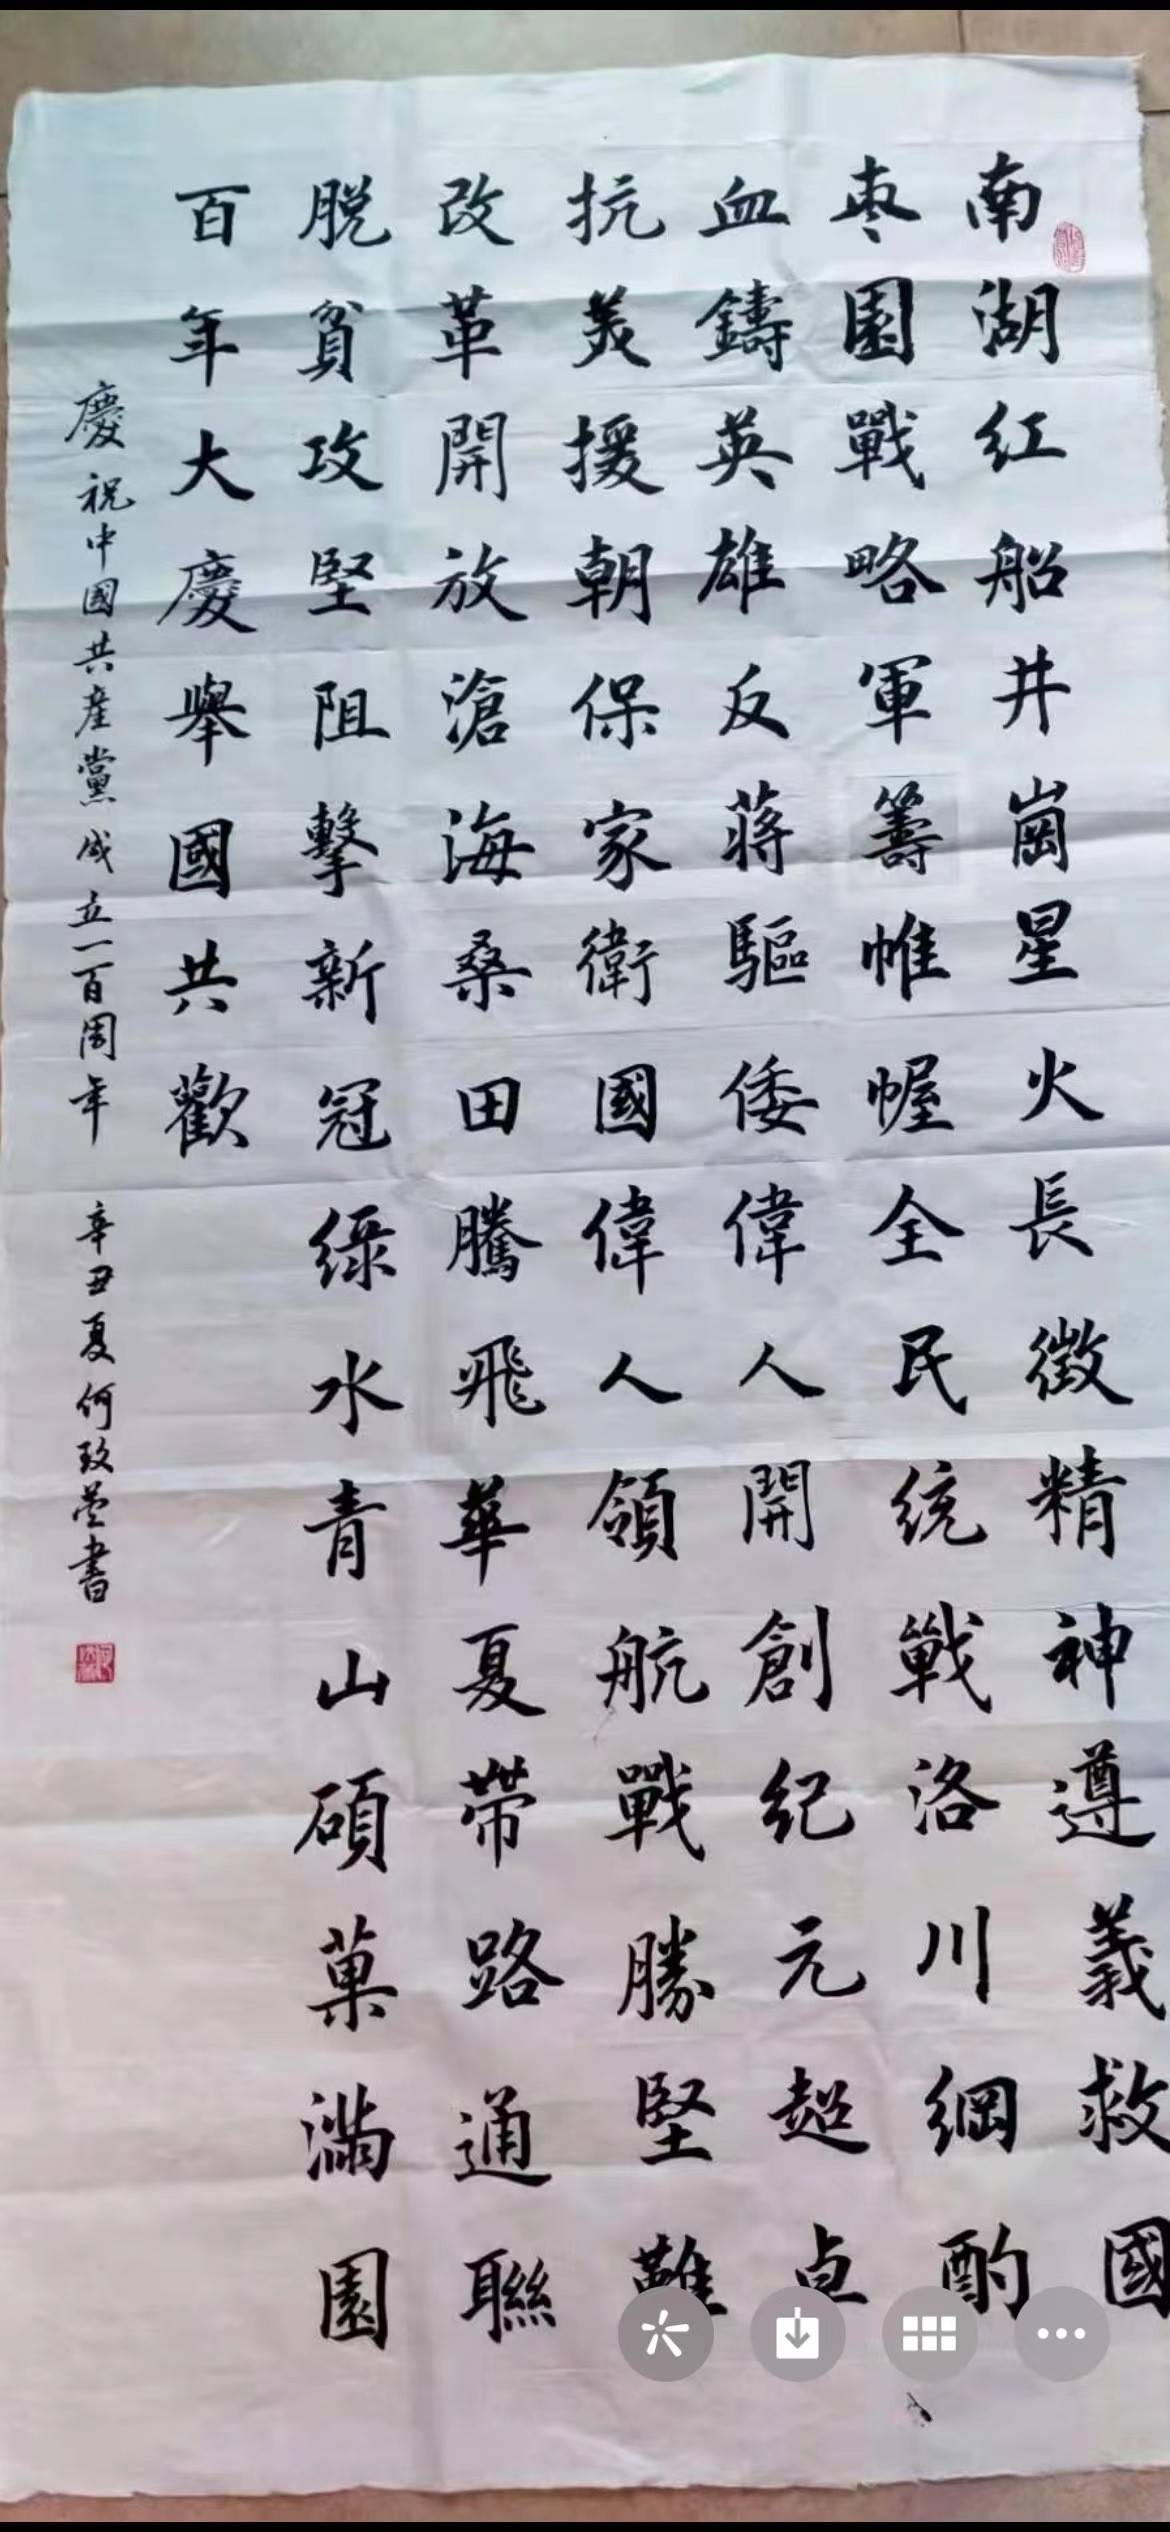 南湖红船井崗星火長徵精神遵義救國
枣園戰略軍籌帷幄全民统戰洛川綱酌
血鑄英雄反蔣驅倭偉人開創纪元超卓
抗美援朝保家衛國偉人領航戰勝堅難
改革開放滄海桑田騰飛華夏帶路通聯
脱貧攻堅阻擊新冠绿水青山碩菓滿園
百年大慶舉國共歡
慶祝中國共產黨成立一百周年 辛丑夏何玫書